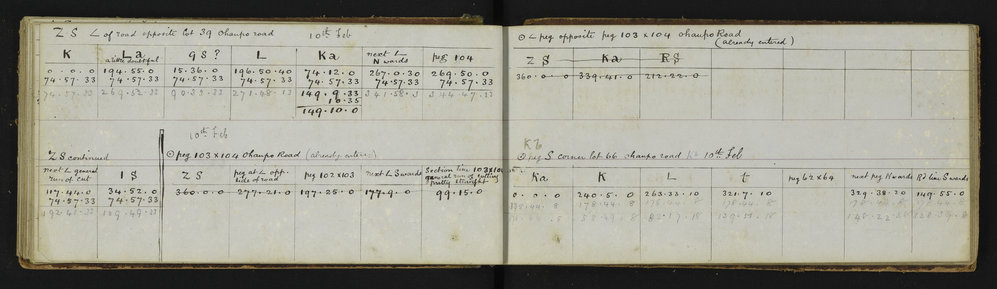 Z S ∠ of road opposite lot 39 Ohaupo road 10th Feb
K La 9S? L Ka next ∠ N wards peg 104
a little doubtful
0.0.0 194.55.0 15.36.0 196.50.40 74.12.0 267.0.30 269.50.0
74.57.33 74.57.33 74.57.33 74.57.33 74.57.33 74.57.33 74.57.33
74.57.33 269.52.33 90.33.33 271.48.13 149.9.33 341.58.3 344.47.33
10.35
149.10.0
10th Feb
Z S continued ⊙ peg 103 x 104 Ohaupo Road (already entered)
next ∠ general run of cut 1S ZS peg at ∠ opp. side of road peg 102 x 103 next ∠ S wards Section line 103 x 104 general run of cutting pretty straight
117.44.0 34.52.0 360.0.0 277.21.0 197.25.0 177.9.0 99.15.0
74.57.33 74.57.33
192.41.33 109.49.33
⊙ ∠ peg opposite peg 103 x 104 Ohaupo Road
(already entered)
ZS Ka RS
360.0.0 339.41.0 212.22.0
⊙ peg S corner lot 66 Ohaupo road 10th Feb
Ka K L t peg 62 x 64 next peg N wards Rd line S wards
0.0.0 240.5.0 263.33.10 321.7.10 329.38.20 149.55.0
178.44.8 178.44.8 178.44.8 178.44.8